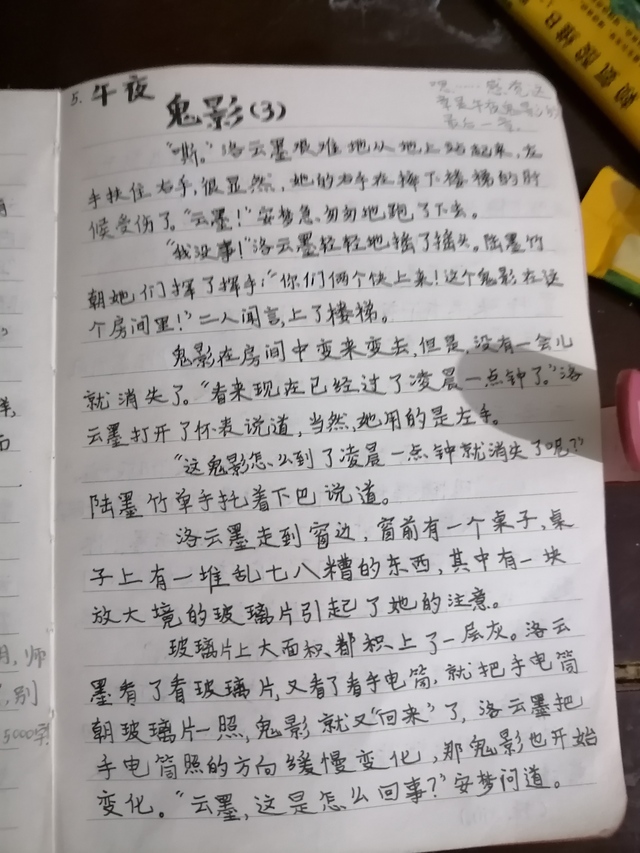 5. 午夜
鬼影(3)
嗯……感觉这
章是午夜鬼影的
最后一章.
赖氨酸维B
“嘶。”洛云墨艰难地从地上站起来，左
手扶住右手，很显然，她的右手在摔下楼梯的时
候受伤了。“云墨！”安梦急匆匆地跑了下去。
“我没事！”洛云墨轻轻地摇了摇头。陆墨竹
朝她们挥了挥手：“你们两个快上来！这个鬼影在这
个房间里！”二人闻言，上了楼梯。
鬼影在房间中变来变去，但是，没有一会儿
就消失了。“看来现在已经过了凌晨一点钟了。”洛
云墨打开了怀表说道，当然，她用的是左手。
“这鬼影怎么到了凌晨一点钟就消失了呢？”
陆墨竹单手托着下巴说道。
洛云墨走到窗边，窗前有一个桌子，桌
子上有一堆乱七八糟的东西，其中有一块
放大境的玻璃片引起了她的注意。
玻璃片上大面积都积上了一层灰。洛云
墨看了看玻璃片，又看了看手电筒，就把手电筒
朝玻璃片一照，鬼影就又“回来”了，洛云墨把
手电筒照的方向缓慢变化，那鬼影也开始
变化。“云墨，这是怎么回事？”安梦问道。
师
别
5000字